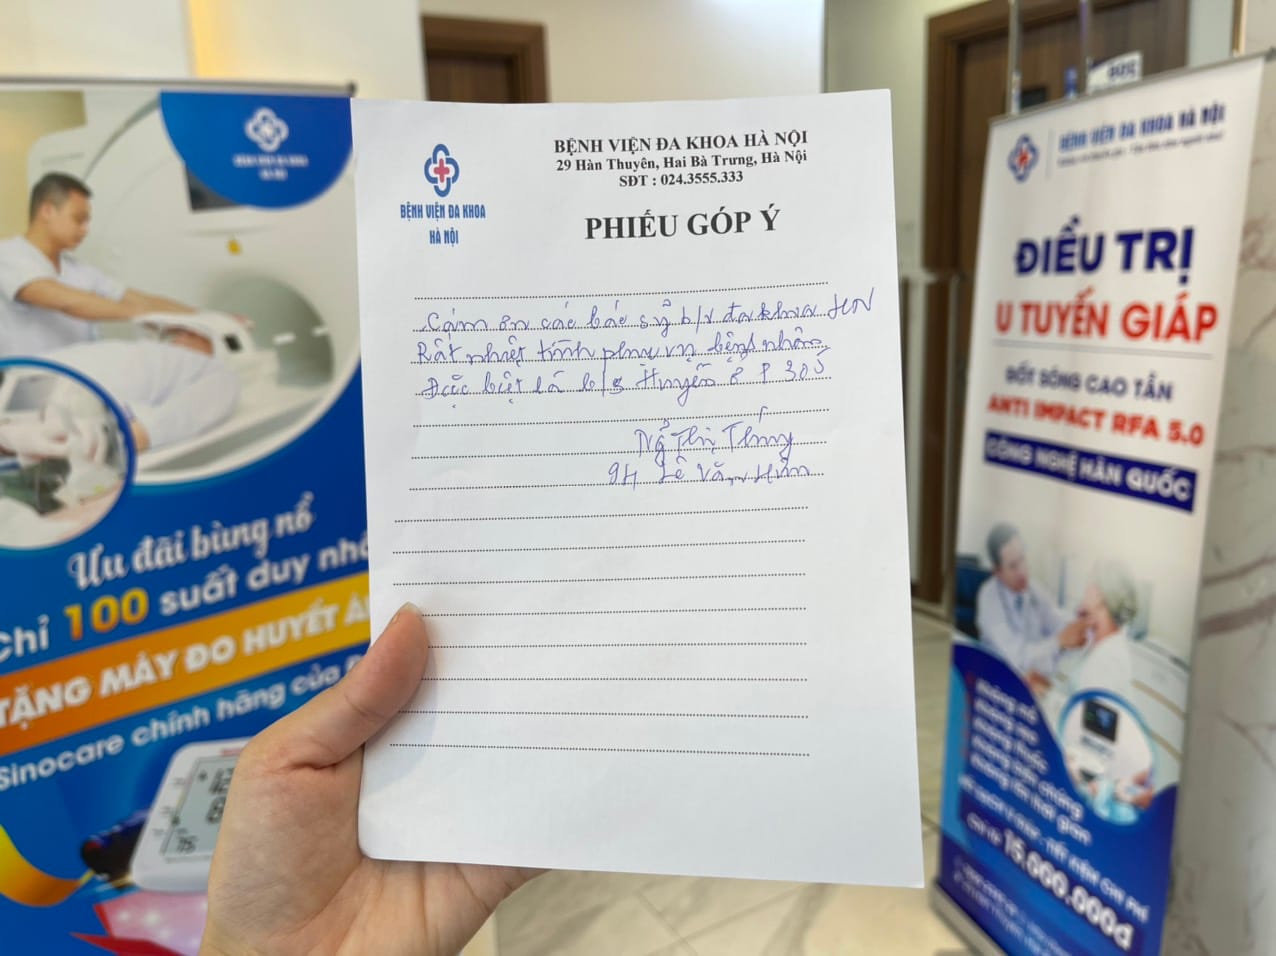 BỆNH VIỆN ĐA KHOA HÀ NỘI
29 Hàn Thuyên, Hai Bà Trưng, Hà Nội
SĐT : 024.3555.333
BỆNH VIỆN ĐA KHOA
HÀ NỘI
PHIẾU GÓP Ý
Cám ơn các bác sỹ b/v đa khoa HN
Rất nhiệt tình phục vụ bệnh nhân
Đặc biệt là b/s Huyền P 305
Thị
Lê Văn
BỆNH VIỆN ĐA KHOA
HÀ NỘI
Ưu đãi bùng nổ
Chỉ 100 suất duy nhấ
TẶNG MÁY ĐO HUYẾT Á
Sinocare chính hãng của
BỆNH VIỆN ĐA KHOA HÀ NỘI
ĐIỀU TRỊ
U TUYẾN GIÁP
ĐỐT SÓNG CAO TẦN
ANTI IMPACT RFA 5.0
CÔNG NGHỆ HÀN QUỐC
Chỉ từ 15.000.000đ